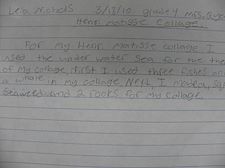 3/13/10 grade 4 Mrs.
Henri Matisse Collage
For my Henri Matisse collage I
used the under water sea for me the
of my collage. First I used three fishes and
a in my collage. Next, I
seaweed and 2 rocks for my collage.